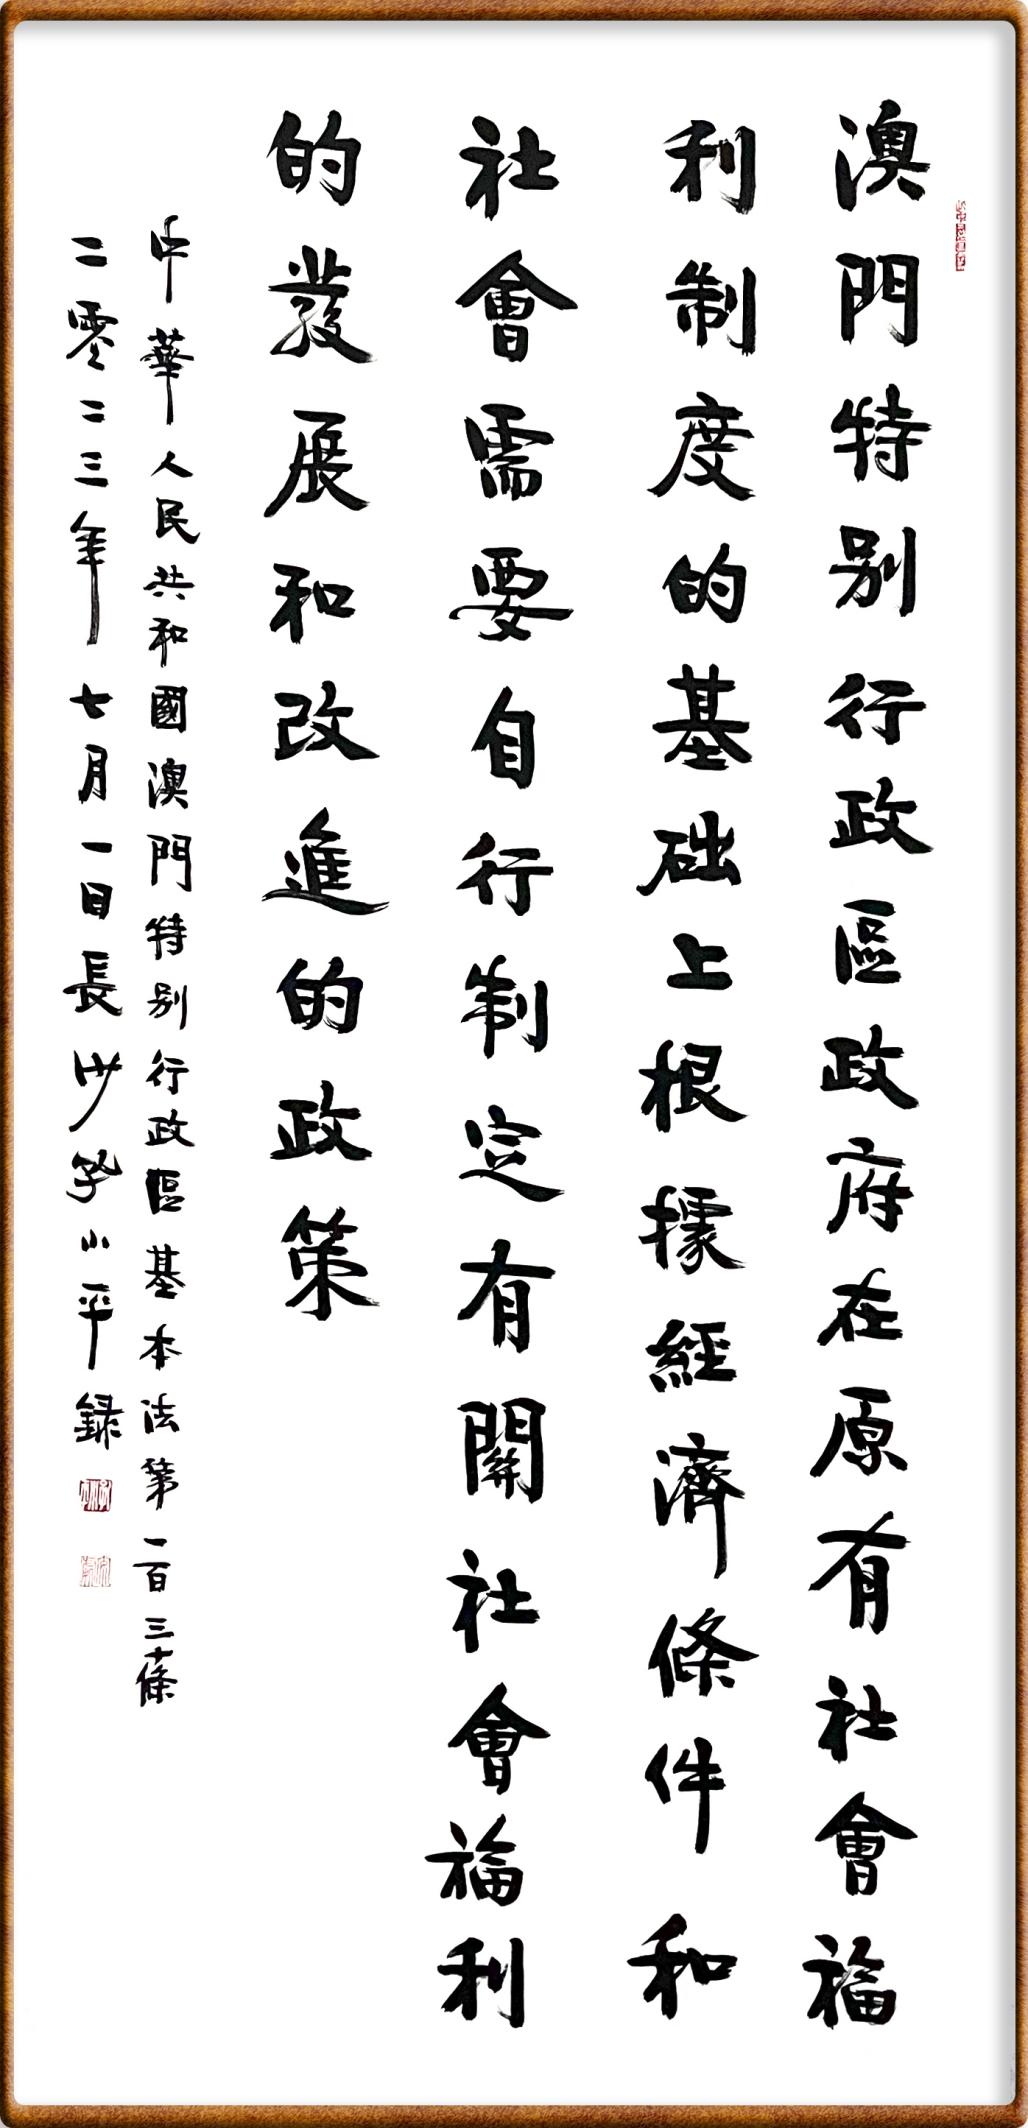 澳門特别行政區政府在原有社會福
利制度的基础上根據經濟條件和
社會需要自行制定有關社會福利
的發展和改進的政策
中華人民共和國澳門特别行政區基本法第一百三十條
二零二三年七月一日長沙小平録